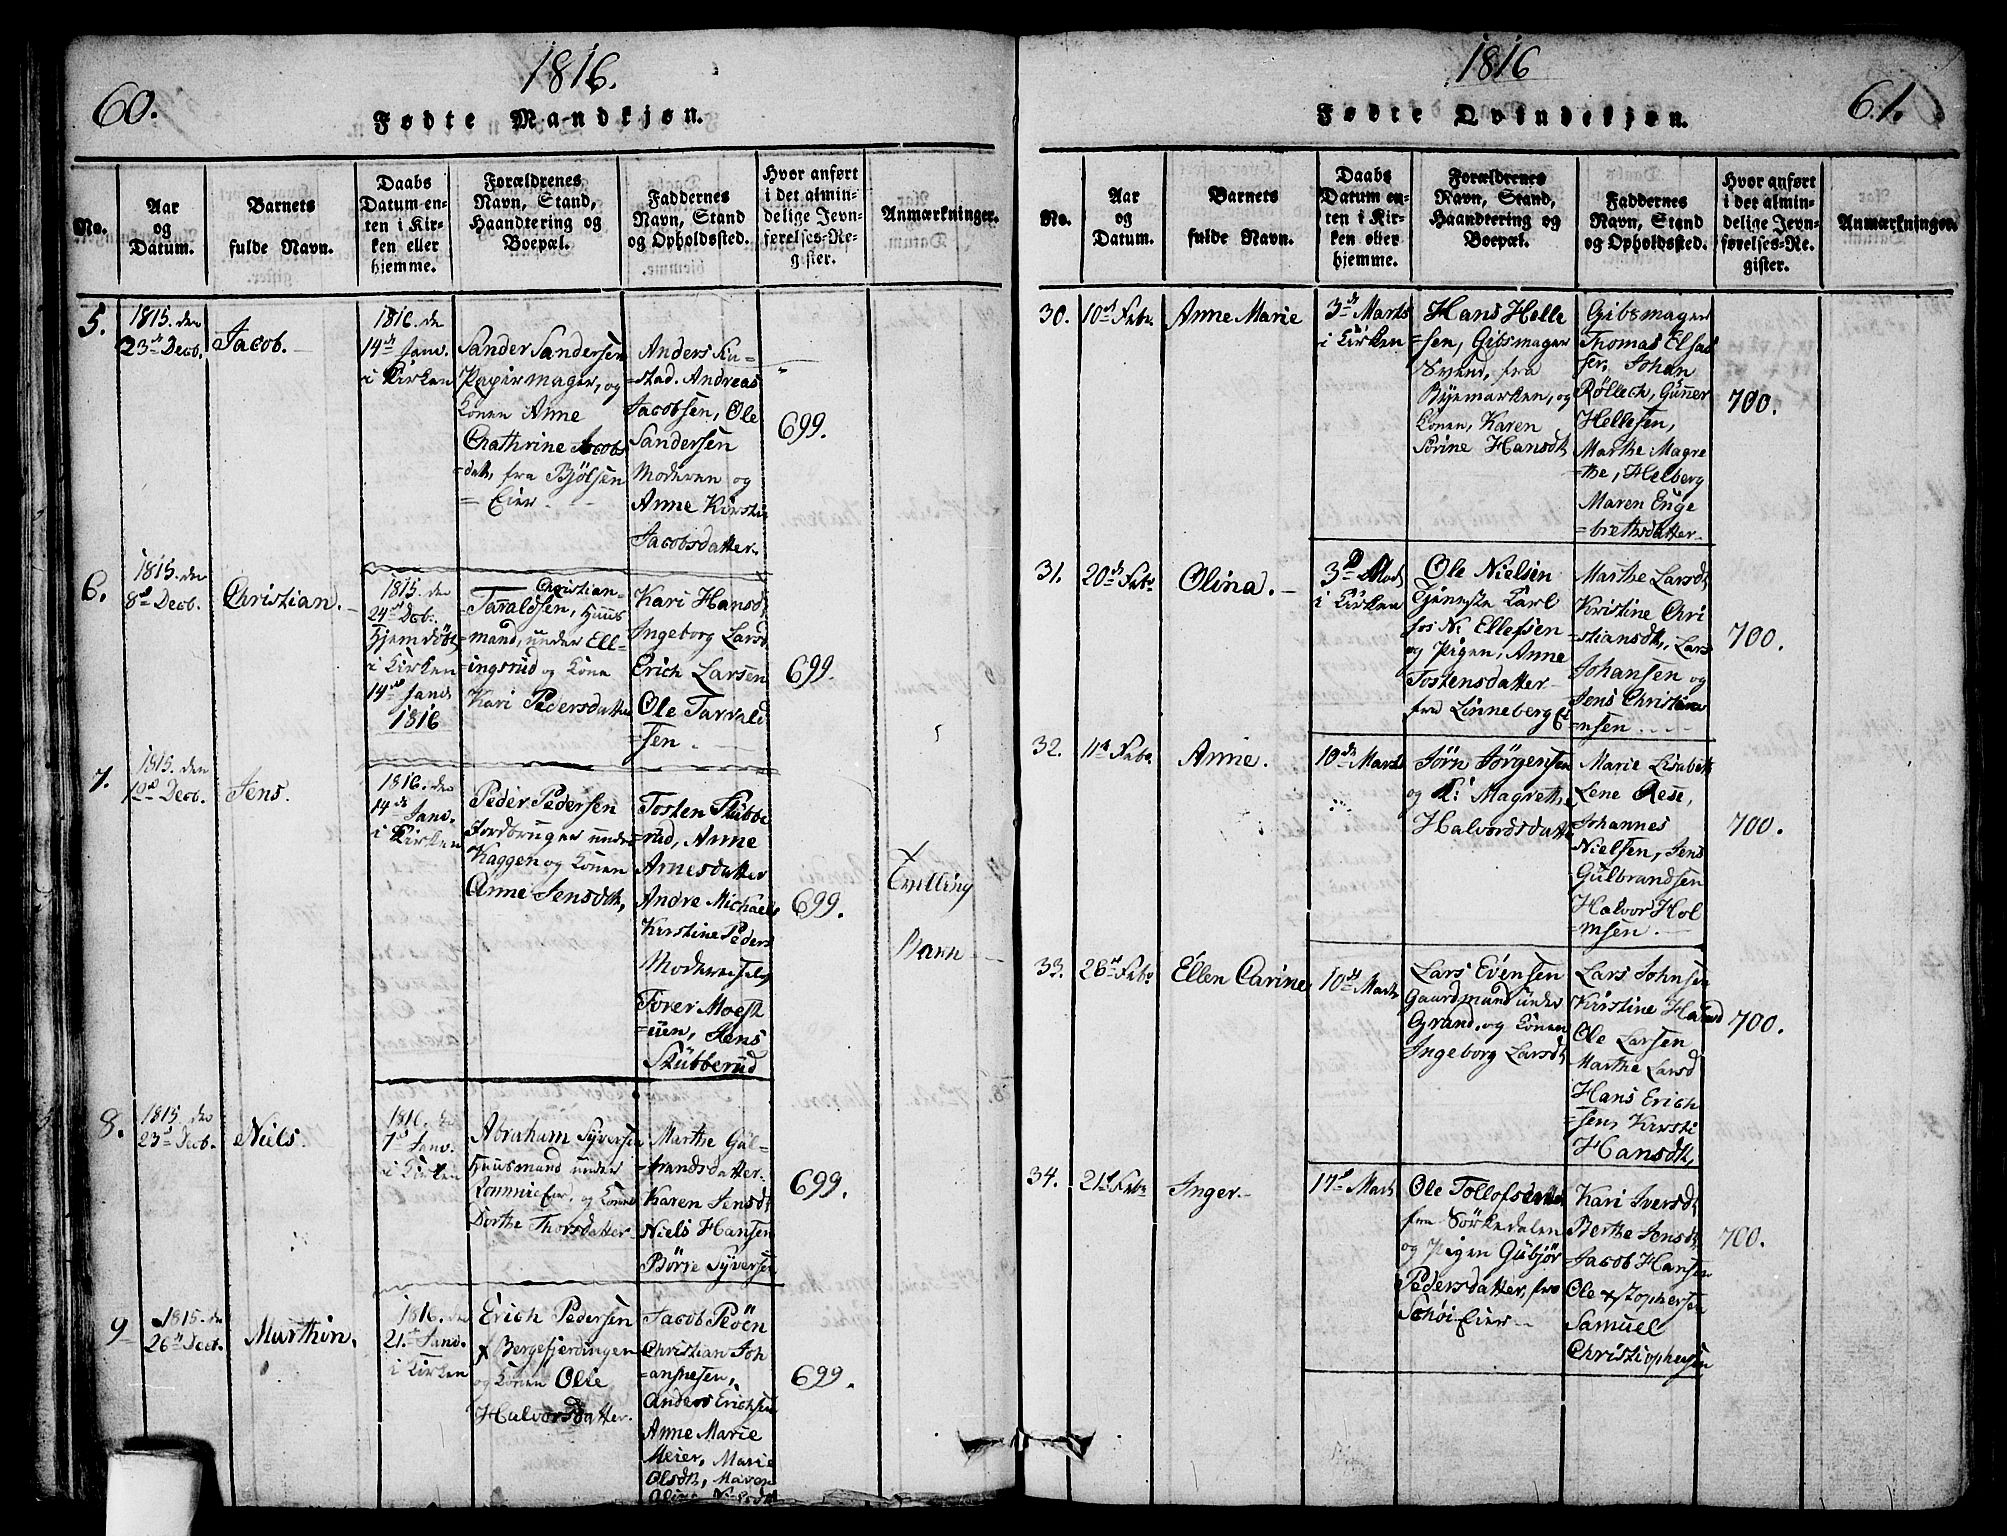 60.
1816.
Fødte Mandkjøn.
No.
Aar
og
Datum.
Barnets
fulde Navn.
Daabs
Datum en-
ten i Kir-
ken eller
hjemme.
Forældrenes
Navn, Stand,
Haandtering og
Boepæl.
Faddernes
Navn, Stand
og Opholdssted.
Hvor anført
i det almin-
delige Jevn-
førelses-Re-
gister.
Anmærkninger.
5.
1815. den
23de Decb.
Jacob.
1816. de
14de Janv.
i Kirken
Sander Sandersen
Papirmager, og
Konen Anne
Chathrine Jacobs
dat, fra Bjølsen
= Eier.
Anders
=stad. Andreas
Jacobsen, Ole
Sandersen
Moderen og
Anne Kirstie
Jacobsdatter.
699.
6.
1815. den
8de Decb.
Christian.
1815. de
24de Deb.
Hjemdöbt
i Kirken
14de Jand.
1816
Christian
Taraldsen, Huus
=mand, under Ell-
=ingsrud og Kone
Kari Pedersdatter
Kari Hansd
Ingeborg Larsd
Erich Larsen
Ole Tarrald
=sen.
699.
7.
1815. den
12de Decb.
Jens.
1816. den
14de Janv.
i Kirken
Peder Pedersen
Jordbruger under
Kaggen og Konen
Anne Jensdtr,
Tosten Stübbe
=rud, Anne
Arnesdatter
Andre Michaels
Kirstine Peders
Moderen selv
Torer Moest
=uen, Jens
Stübberüd
699.
Tvilling
Barn
8.
1815 den
23de Decb.
Niels.
1816. de
7de Janv.
i Kirken
Abraham Syversen
Huusmand under
og Kone
Dorthe Thorsdatter
Marthe Gül-
=brandsdatter
Karen Jensdt
Niels Hansen
Börre Syversen
699.
9
1815. de
26de Decb.
Marthin.
1816. de
21de Jand.
i Kirken
Erich Pedersen
x Bergefjerdingen
og Konen Olie
Halvorsdatter.
Jacob Peöen
Christian Joh
=annesen,
Anders Erichsen
Anne Marie
Meier, Marie
Olsdtr, Maren
699.
1816
61.
Fødte Qvindekjøn.
No.
Aar
og
Datum.
Barnets
fulde Navn.
Daabs
Datum en-
ten i Kir-
ken eller
hjemme.
Forældrenes
Navn, Stand,
Haandtering og
Boepæl.
Faddernes
Navn, Stand
og Opholdssted.
Hvor anført
i det almin-
delige Jevn-
førelses-Re-
gister.
Anmærkninger.
30.
10de Febr.
Anne Marie
3de Marts
i Kirken
Hans Helle
=sen, Gibsmager
Svend, fra
Byemarken, og
Konen, Karen
Sorine Hansdt
Gibsmager
Thomas Elsas
ser, Johan
Röllech, Günner
Hellesen,
Marthe Magre
=the, Helberg
Maren Enge
=brethsdatter
700.
31.
20de Febr.
Olina.
3de
i Kirken
Ole Nielsen
Tjeneste Karl
hos N. Ellefsen
og Pigen, Anne
Tostensdatter
fra Linneberg Ei
Marthe Larsdt
Kristine Chri
=stiansdtr, Lars
Johansen og
Jens Christian
=nsen.
700.
32.
11de Febr.
Anne.
10de Marts
Jörn Jörgensen
og K: Magrethe
Halvordsdatter
Marie Lisabeth
Lene Rese,
Johannes
Nielsen, Jens
Gülbrandsen
Halvor Hol
=msen.
700.
33.
26de Febr.
Ellen Carine
10de Marts
Lars Evensen
Gaardmand under
Grand, og Konen
Ingeborg Larsdt
Lars Johnsen
Kirstine
Ole Larsen
Marthe Larsd
Hans Erich
=sen, Kirsti
Hansdtr,
700.
34.
21de Febr.
Inger.
17de Marts
Ole Tollofsen
fra Sörkedalen
og Pigen Gübjör
Pedersdatter, fra
Schöi Eier
Kari Iversdt
Berthe Jensdt,
Jacob Hansen
Ole
Samuel
Christiophersen
700.